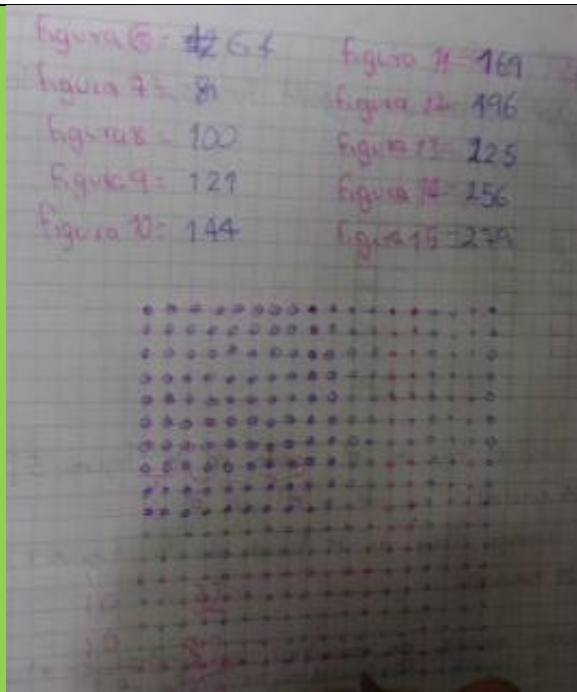 figura 6= 64
figura 7= 81
figura 8= 100
figura 9= 121
figura 10= 144
figura 11= 169
figura 12= 196
figura 13= 225
figura 14= 256
figura 15= 279